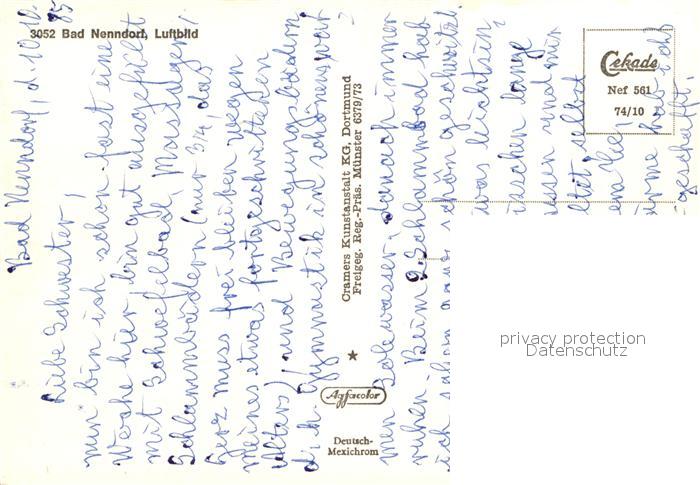 3052 Bad Nenndorf, Luftbild
Bad Nenndorf, d. 10.12.
85
Liebe Schwester!
nun bin ich schon fast eine
Woche hier, bin gut ausgefüllt
mit Schwefelbade, Massagen,
Schlammbädern (nur 3/4, das
Herz muss frei bleiben wegen
meines etwas fortgeschrittenen
Alters) und Bewegungsbädern
d. h. Gymnastik in schönem war
men Solewasser. danach immer
ruhen. Beim 2. Schlammbad hab
ich schon ganz schön geschwitzt.
was leichtsin
isschen lange
essen und
selbst
Sie
hab ich
geschafft
Cramers Kunstanstalt KG, Dortmund
Freigeg. Reg.-Präs. Münster 6379/73
Agfacolor
Deutsch-
Mexichrom
Cekade
Nef 561
74/10
privacy protection
Datenschutz